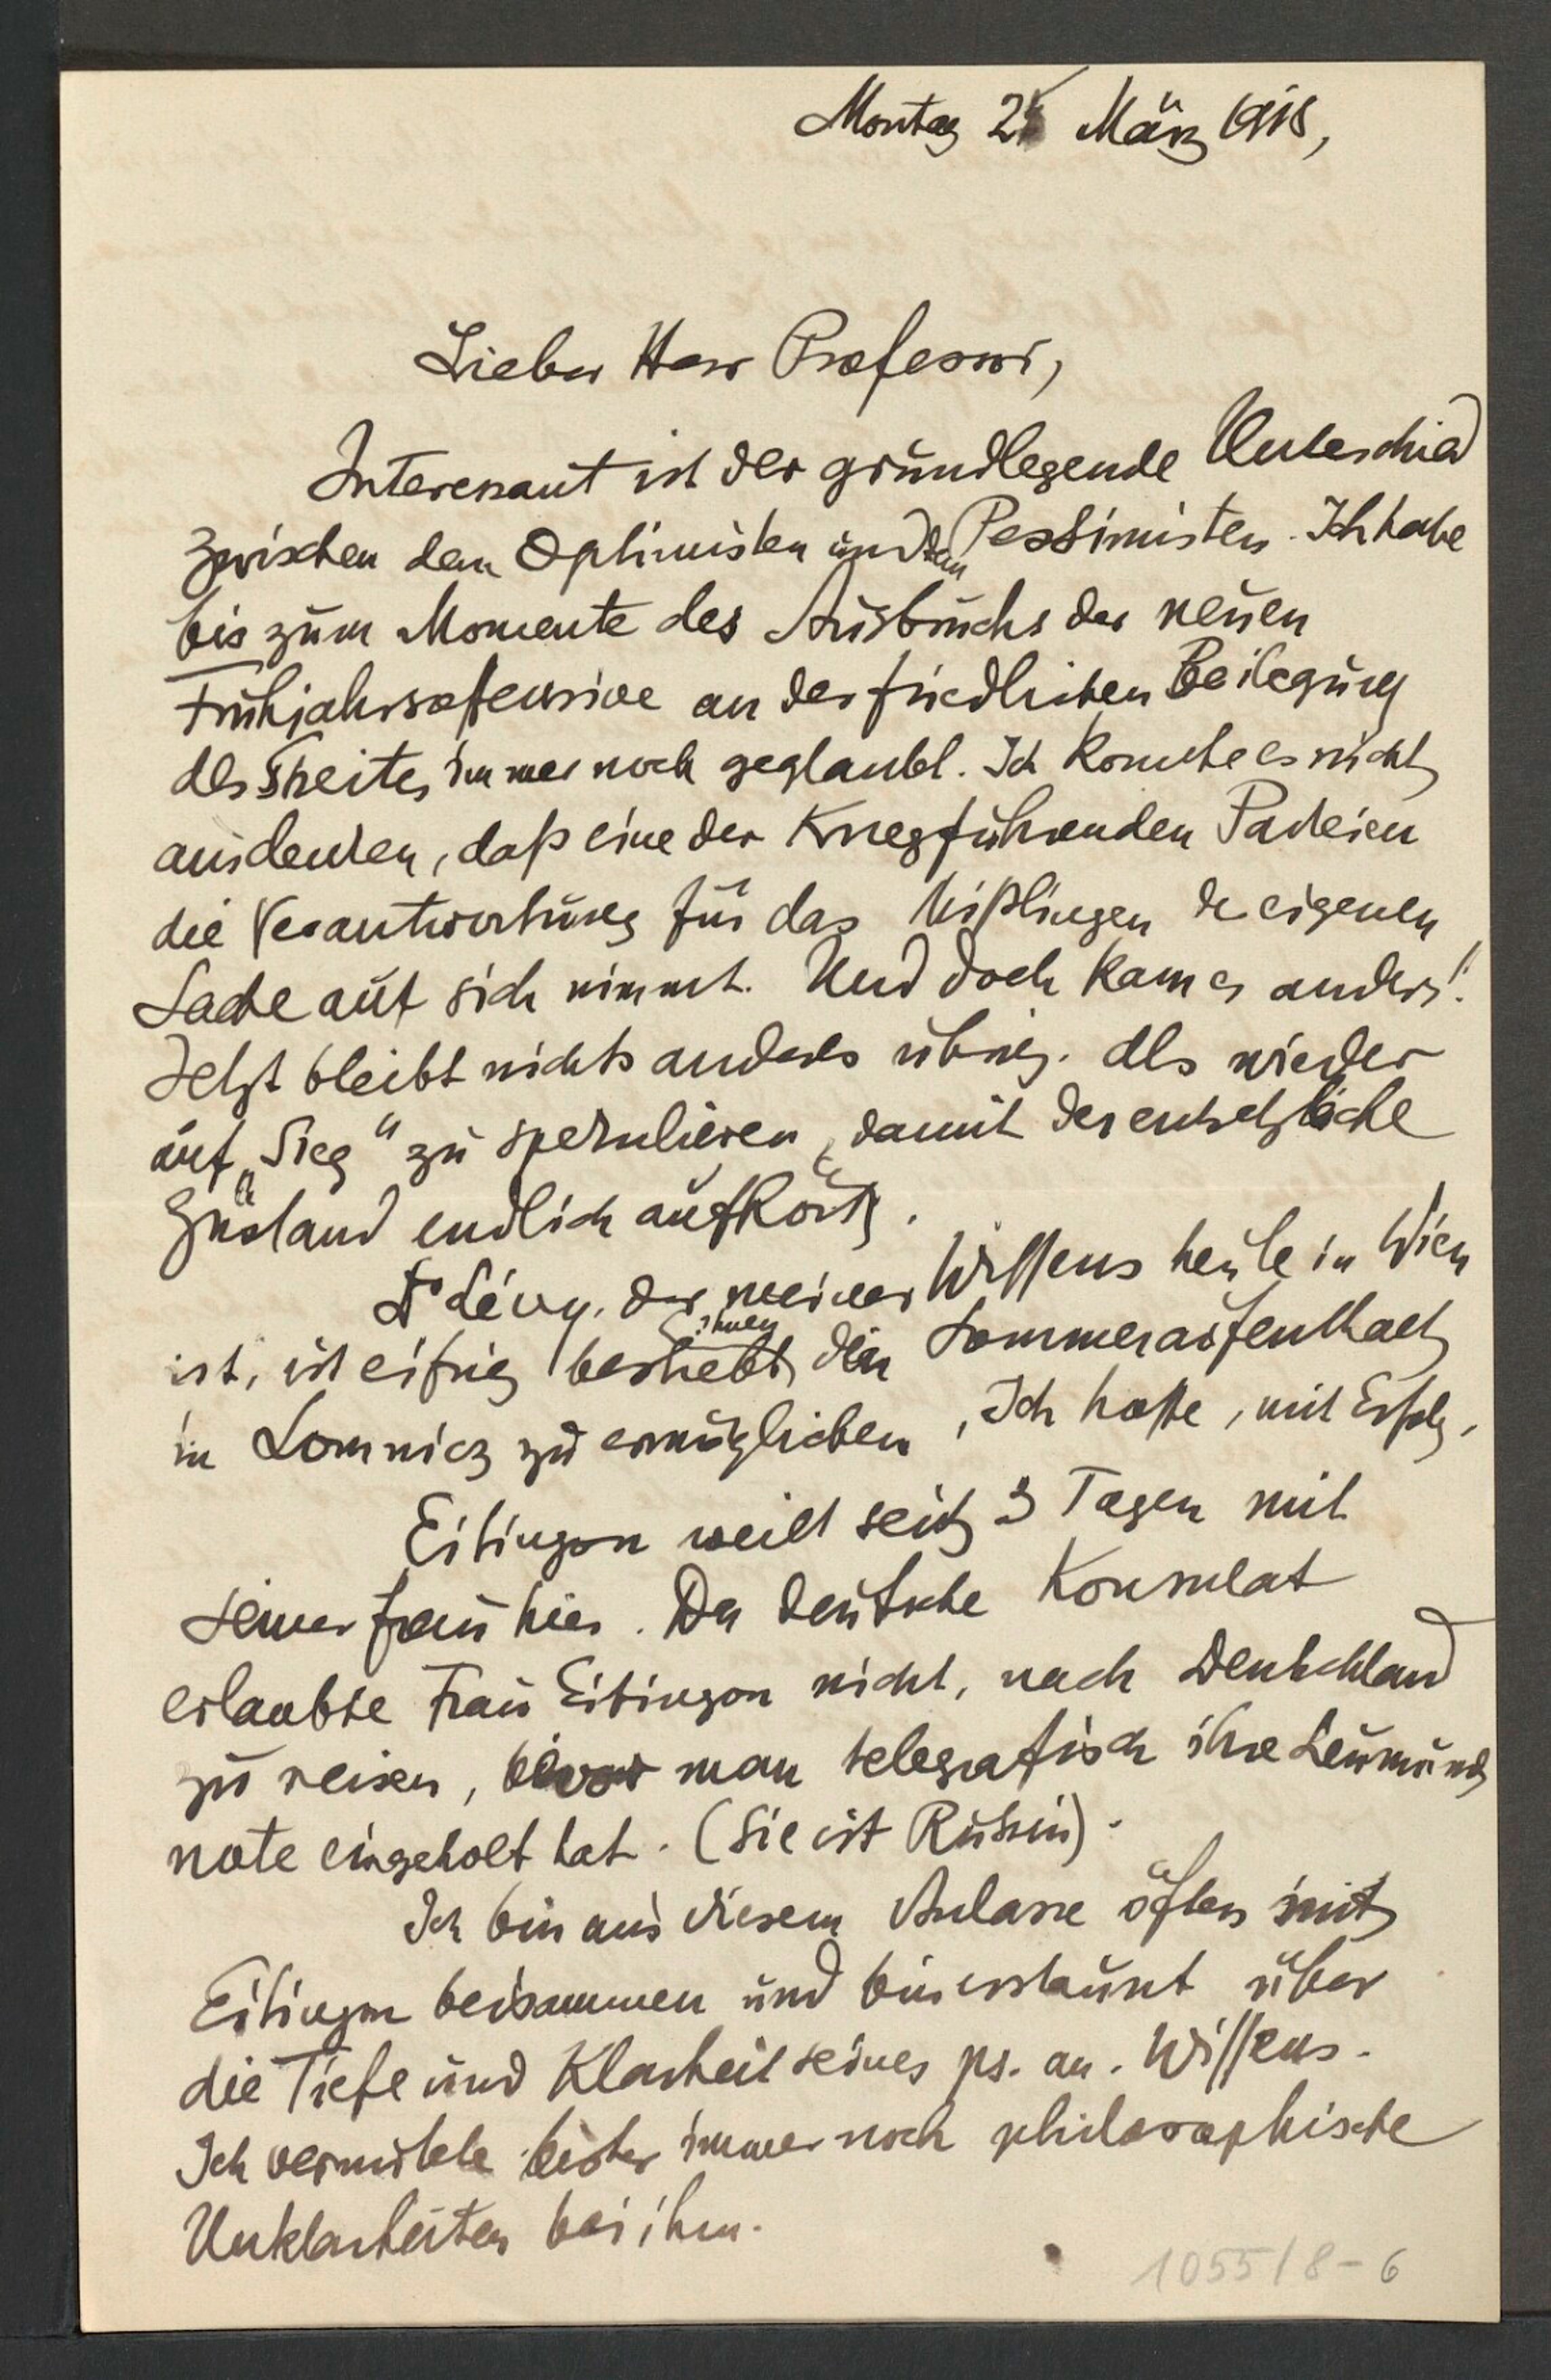 Montag 25 März 1918,
Lieber Herr Professor,
Interessant ist der grundlegende Unterschied
zwischen dem Optimisten und dem Pessimisten. Ich habe
bis zum Momente des Ausbruchs der neuen
Frühjahrsofensive an der friedlichen Beilegung
des Streites immer noch geglaubt. Ich konnte es nicht
ausdenken, daß eine der Kriegführenden Parteien
die Verantwortung für das Mißlingen der eigenen
Sache auf sich nimmt. Und doch kam es anders!
Jetzt bleibt nichts anderes übrig. als wieder
auf „Sieg“ zu spekulieren, damit der entsetzliche
Zustand endlich aufhört.
Dr Lévy, der meines Wissens heute in Wien
ist, ist eifrig bestrebt, Ihnen den Sommeraufenthalt
in Lomnicz zu ermöglichen, Ich hoffe, mit Erfolg.
Eitingon weilt seit 3 Tagen mit
seiner Frau hier. Das deutsche Konsulat
erlaubte Frau Eitingon nicht, nach Deutschland
zu reisen, bevor man telegrafisch ihre Leumunds
note eingeholt hat. (Sie ist Russin).
Ich bin aus diesem Anlasse öfters mit
Eitingon beisammen und bin erstaunt über
die Tiefe und Klarheit seines ps. an. Wissens.
Ich vermutete bisher immer noch philosophische
Unklarheiten bei ihm.
1055/8-6